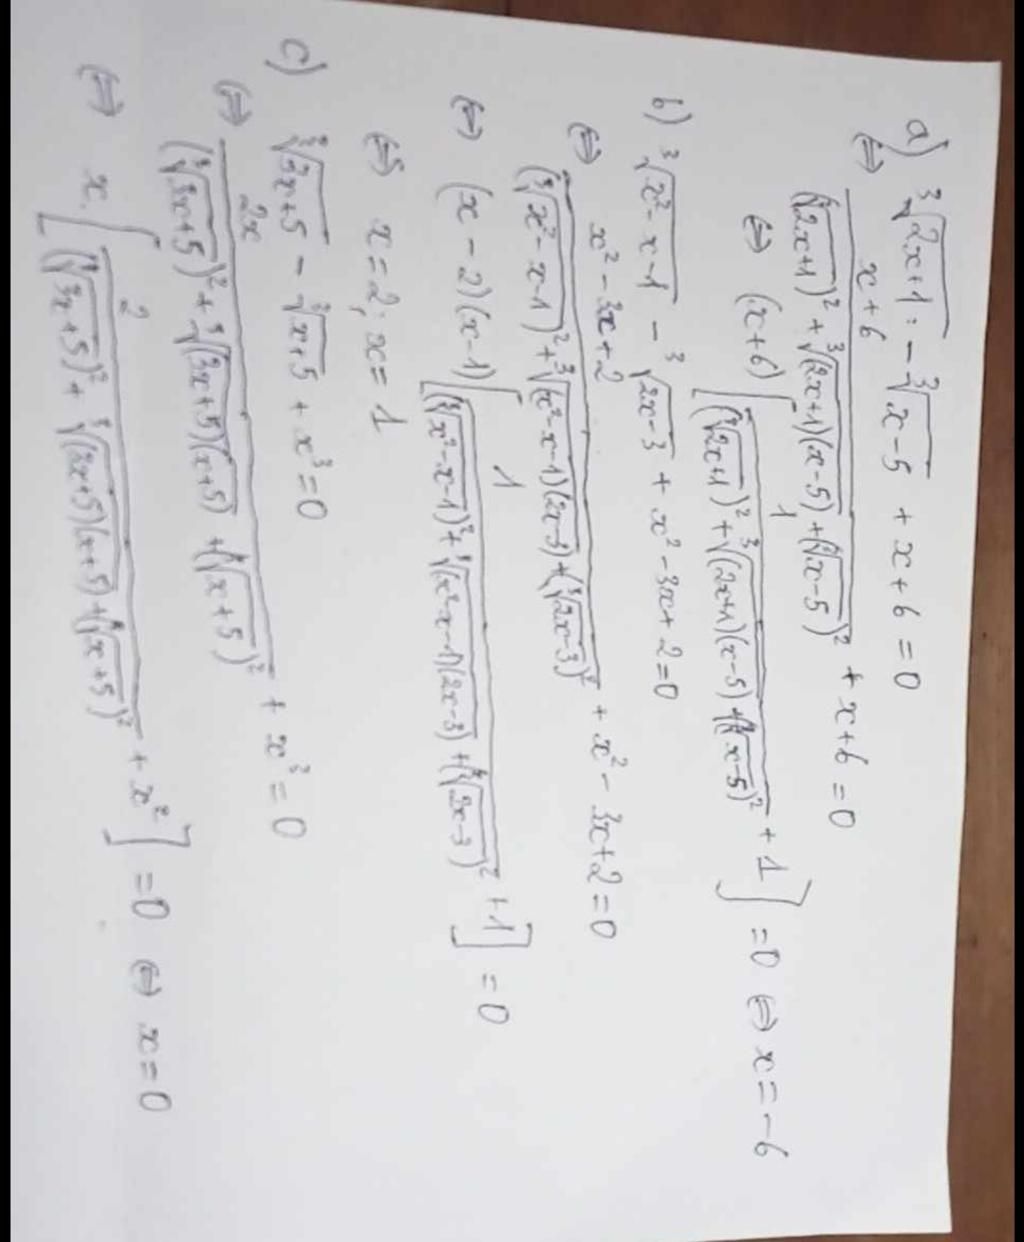 a) ∛(2x+1) - ∛(x-5) + x+6 = 0
⇔ (x+6)/((∛(2x+1))² + ∛((2x+1)(x-5)) + (∛(x-5))²) + x+6 = 0
⇔ (x+6)[1/((∛(2x+1))² + ∛((2x+1)(x-5)) + (∛(x-5))²) + 1] = 0 ⇔ x = -6
b) ∛(x²-x-1) - ∛(2x-3) + x²-3x+2=0
⇔ (x²-3x+2)/((∛(x²-x-1))² + ∛((x²-x-1)(2x-3)) + (∛(2x-3))²) + x²-3x+2=0
⇔ (x-2)(x-1)[1/((∛(x²-x-1))² + ∛((x²-x-1)(2x-3)) + (∛(2x-3))²) + 1] = 0
⇔ x=2; x=1
c) ∛(3x+5) - ∛(x+5) + x³=0
⇔ 2x/((∛(3x+5))² + ∛((3x+5)(x+5)) + (∛(x+5))²) + x³=0
⇔ x.[2/((∛(3x+5))² + ∛((2x+5)(x+5)) + (∛(x+5))²) + x²] =0 ⇔ x=0